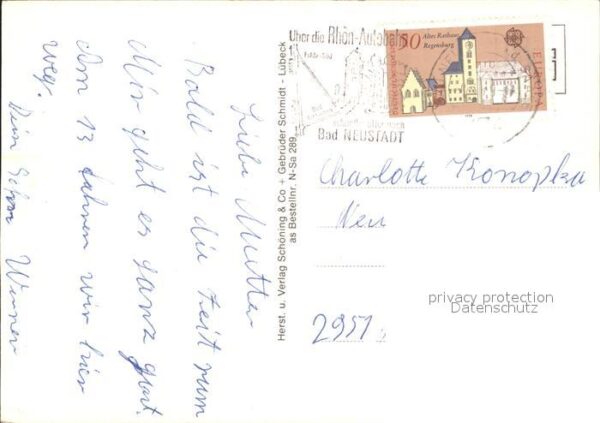 Liebe Mutter
Bald ist die Zeit rum
Mir geht es ganz gut.
Am 13 fahren wir hier
weg.
Dein Sohn Werner
Herst. u. Verlag Schöning & Co + Gebrüder Schmidt - Lübeck
as Bestellnr. N-Sa 289
Über die Rhön-Autobahn
Bad NEUSTADT
50 Altes Rathaus
Regensburg
EUROPA
Charlotte Konopka
Neu
2951
privacy protection
Datenschutz